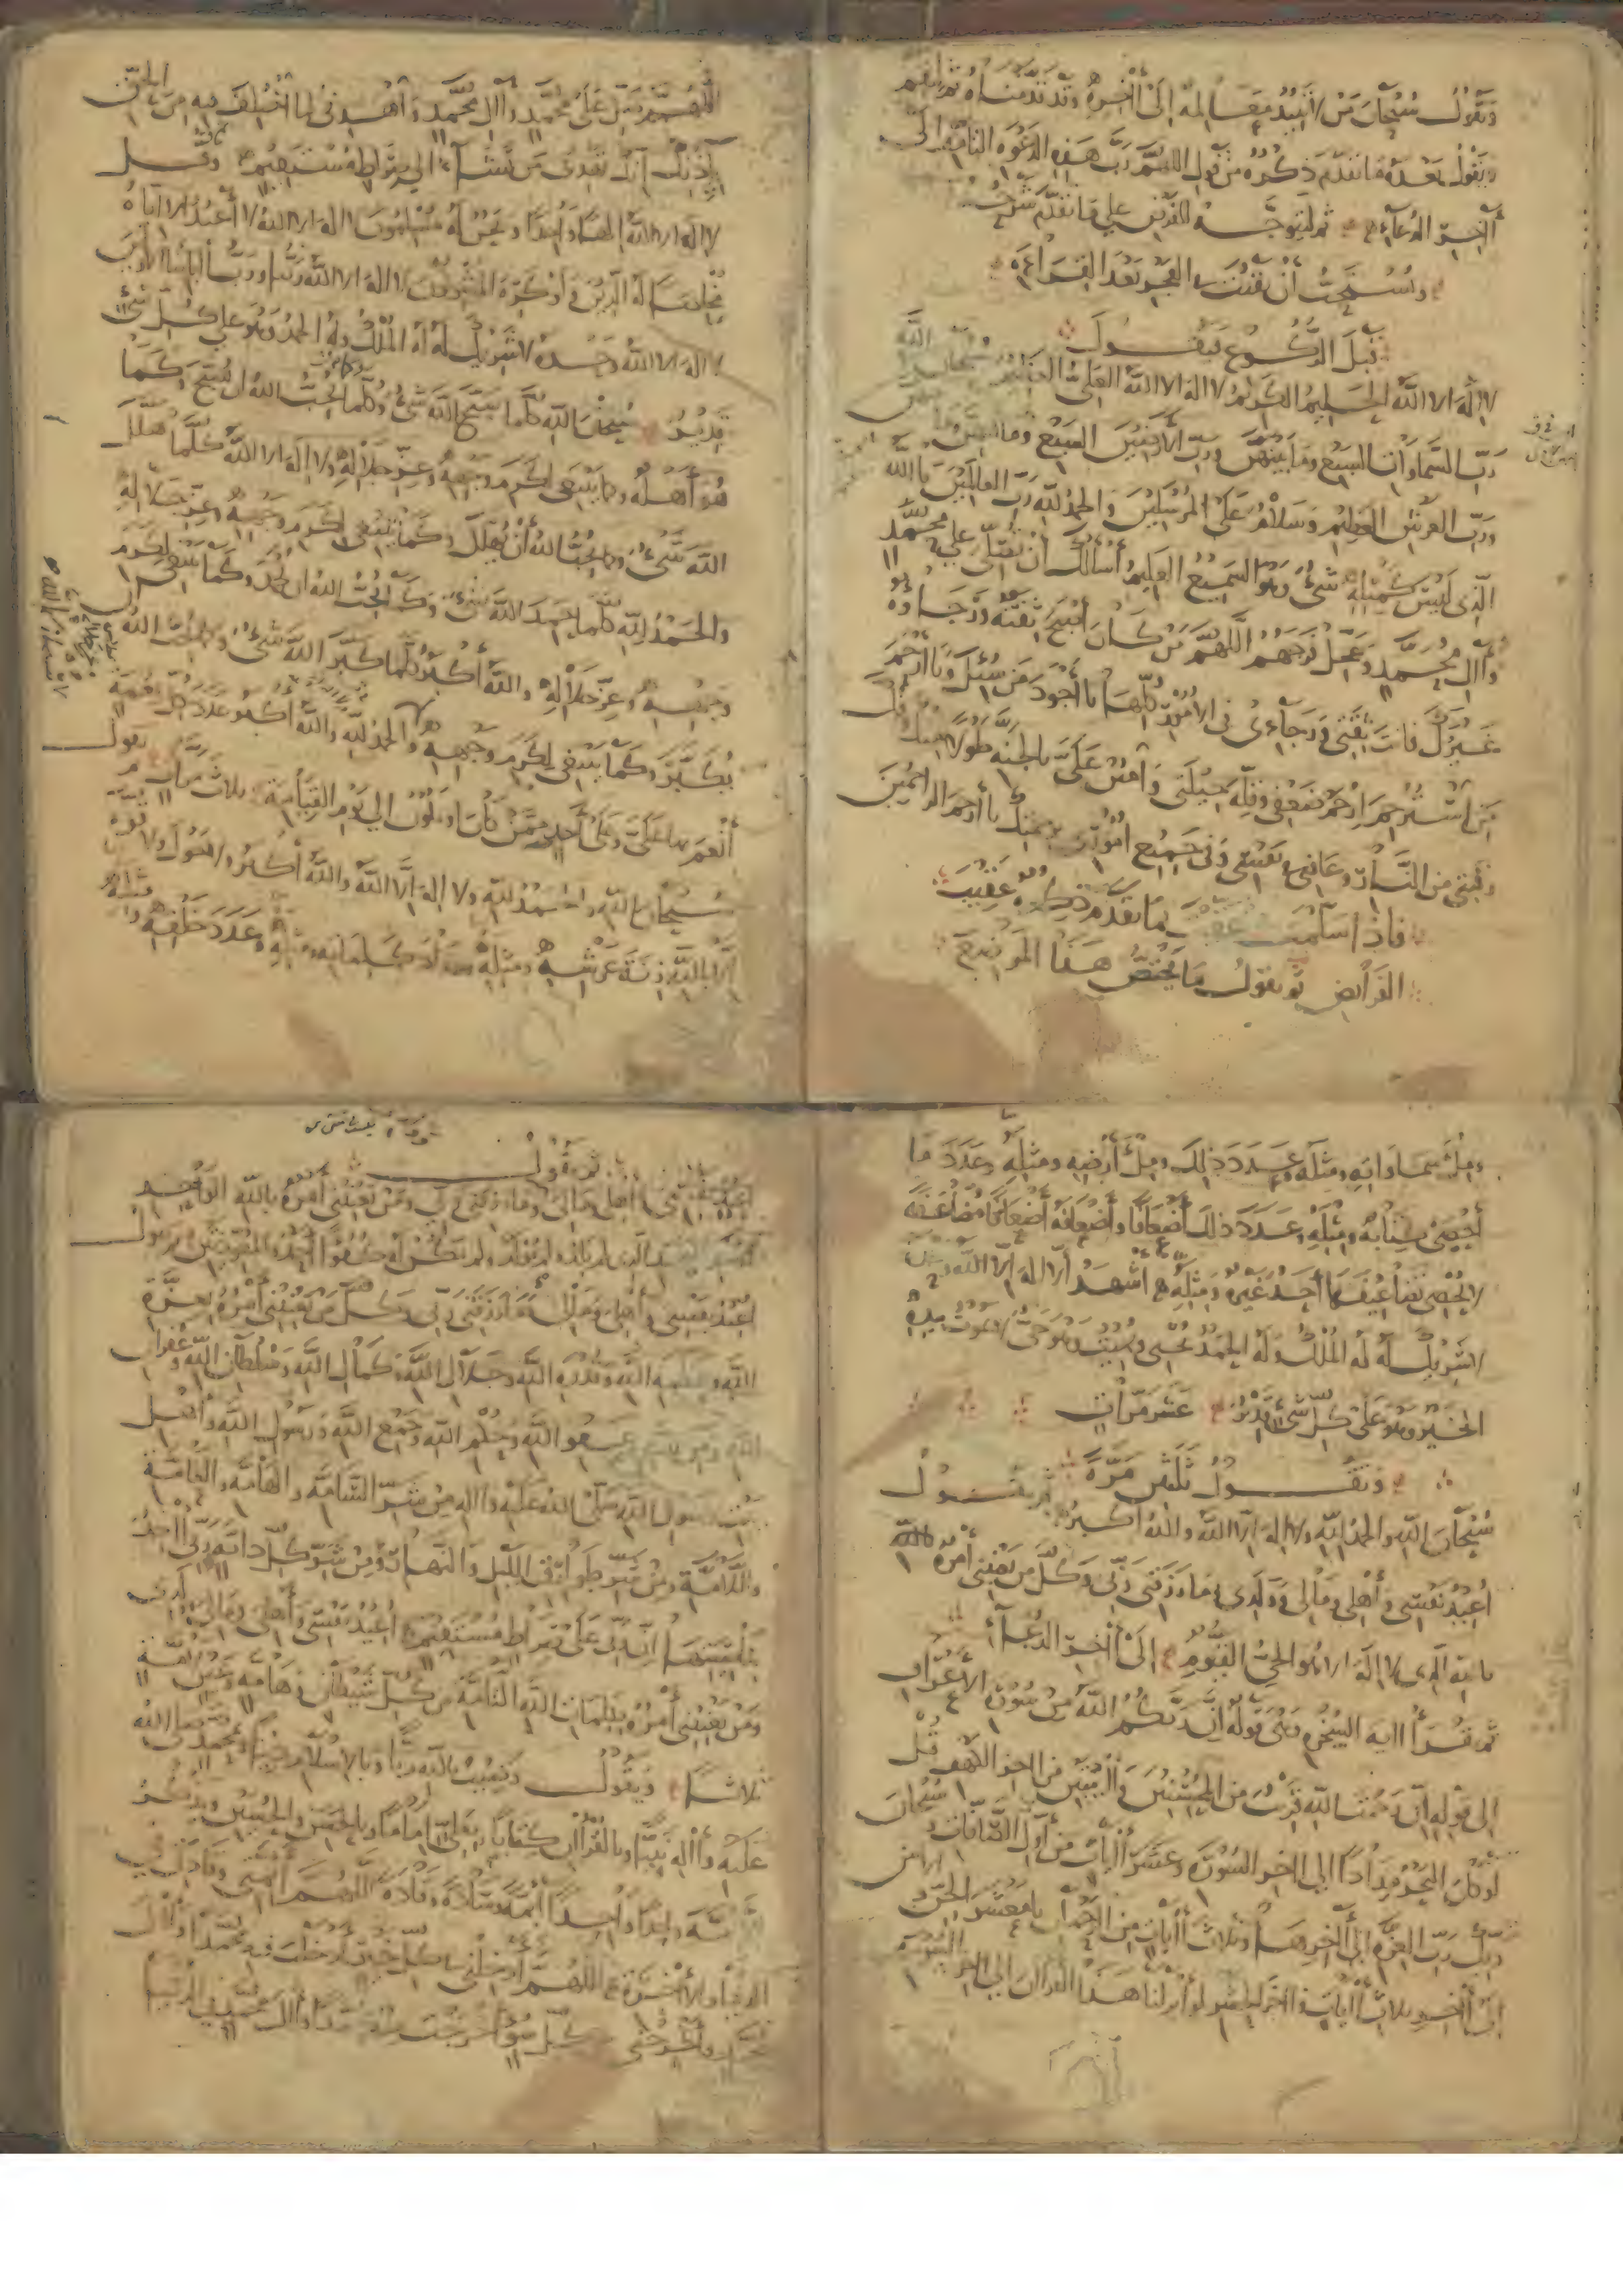 وتقول سبحان من لا تبيد معالمه إلى آخره وقد قدمناه ثم أقم
وتقول بعده ما تقدم ذكره من قول اللهم رب هذه الدعوة التامة إلى
آخر الدعاء ثم ليتوجه للفرض على ما تقدم شرحه
ويستحب أن يقنت في الفجر بعد القراءة
قبل الركوع فيقول
لا إله إلا الله الحليم الكريم لا إله إلا الله العلي العظيم سبحان الله
رب السماوات السبع وما بينهن ورب الأرضين السبع وما فيهن
ورب العرش العظيم وسلام على المرسلين والحمد لله رب العالمين يا الله
الذي ليس كمثله شيء وهو السميع العليم أسألك أن تصلي على محمد
وآل محمد وعجل فرجهم اللهم من كان أصبح ثقته ورجاؤه
غيرك فأنت ثقتي ورجائي في الأمور كلها يا أجود من سئل ويا أرحم
من استرحم ارحم ضعفي وقلة حيلتي وامنن علي بالجنة طولا منك وفك
رقبتي من النار وعافني في نفسي وفي جميع أموري برحمتك يا أرحم الراحمين
فإذا سلمت عقبت بما تقدم ذكره عقيب
الفرائض ثم تقول ما يختص هذا الموضع
اللهم صل على محمد وآل محمد واهدني لما اختلف فيه من الحق
بإذنك إنك تهدي من تشاء إلى صراط مستقيم وقل
لا إله إلا الله إلها واحدا ونحن له مسلمون لا إله إلا الله لا نعبد إلا إياه
مخلصين له الدين ولو كره المشركون لا إله إلا الله ربنا ورب آبائنا الأولين
لا إله إلا الله وحده لا شريك له له الملك وله الحمد وهو على كل شيء
قدير سبحان الله كلما سبح الله شيء وكما يحب الله أن يسبح وكما
هو أهله وكما ينبغي لكرم وجهه وعز جلاله ولا إله إلا الله كلما هلل
الله شيء وكما يحب الله أن يهلل وكما ينبغي لكرم وجهه وعز جلاله
والحمد لله كلما حمد الله شيء وكما يحب الله أن يحمد وكما ينبغي لكرم
وجهه وعز جلاله والله أكبر كلما كبر الله شيء وكما يحب الله
يكبر وكما ينبغي لكرم وجهه والحمد لله والله أكبر عدد كل نعمة
أنعم بها علي وعلى أحد ممن كان أو يكون إلى يوم القيامة ثلاث مرات ثم تقول
سبحان الله والحمد لله ولا إله إلا الله والله أكبر ولا حول ولا قوة
إلا بالله زنة عرشه ومثله ومداد كلماته ومثله وعدد خلقه ومثله
وملء سماواته ومثله وعدد ذلك وملء أرضه ومثله وعدد ما
أحصى كتابه ومثله وعدد ذلك أضعافا وأضعافه أضعافا مضاعفة
لا يحصي تضاعيفها أحد غيره ومثله أشهد ألا إله إلا الله وحده
لا شريك له له الملك وله الحمد يحيي ويميت وهو حي لا يموت بيده
الخير وهو على كل شيء قدير عشر مرات
وتقول ثلثين مرة
سبحان الله والحمد لله ولا إله إلا الله والله أكبر ثم تقول
أعيذ نفسي وأهلي ومالي وولدي وما رزقني ربي وكل من يعنيني أمره بالله
الذي لا إله إلا هو الحي القيوم إلى آخر الدعاء
ثم تقرأ آية السخرة وهي قوله إن ربكم الله من سورة الأعراف
إلى قوله إن رحمت الله قريب من المحسنين والآيتين من آخر الكهف قل
لو كان البحر مدادا إلى آخر السورة وعشر آيات من أول الصافات و سبحان
ربك رب العزة إلى آخرها وثلاث آيات من الرحمن يا معشر الجن
إلى آخر ثلاث آيات وآخر الحشر لو أنزلنا هذا القرآن إلى آخر السورة
ثم تقول
أعيذ نفسي وأهلي ومالي وما رزقني ربي ومن يعنيني أمره بالله الواحد
الأحد الصمد الذي لم يلد ولم يولد ولم يكن له كفوا أحد والمعوذتين ثم تقول
أعيذ نفسي وأهلي ومالي وما رزقني ربي وكل من يعنيني أمره بعزة
الله وعظمة الله وقدرة الله وجلال الله وكمال الله وسلطان الله وغفران
الله عفو الله وحلم الله وجمع الله ورسول الله وأهل
بيت رسول الله صلى الله عليه وآله من شر السامة والهامة والعامة
واللامة ومن شر طوارق الليل والنهار ومن شر كل دابة ربي آخذ
بناصيتها إن ربي على صراط مستقيم أعيذ نفسي وأهلي ومالي وولدي
ومن يعنيني أمره بكلمات الله التامة من كل شيطان وهامة وعين لامة
ثلاثا ويقول رضيت بالله ربا وبالإسلام دينا وبمحمد صلى الله
عليه وآله نبيا وبالقرآن كتابا وبعلي إماما وبالحسن والحسين ويذكر
الأئمة واحدا واحدا أئمة وسادة وقادة اللهم
الدنيا والآخرة اللهم أدخلني في كل خير أدخلت فيه محمدا وآل
محمد وأخرجني من كل سوء أخرجت منه محمدا وآل محمد في الدنيا